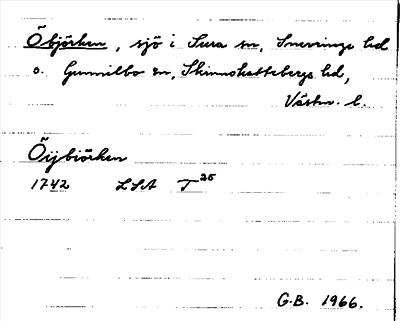 Õbjörken, sjö i Sura sn, Snevringe hd
o. Gunnilbo sn, Skinnskattebergs hd,
Västm. l.
Õijbiörken
1742 LSA T 25
G.B. 1966.